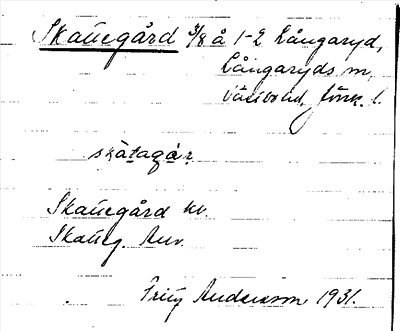 Skattegård 3/8 å 1-2 Långaryd,
Långaryds sn,
Västbo hd, Jönk. l.
skàtagár
Skattegård kv.
Skatteg.
Frity Andersson 1931.